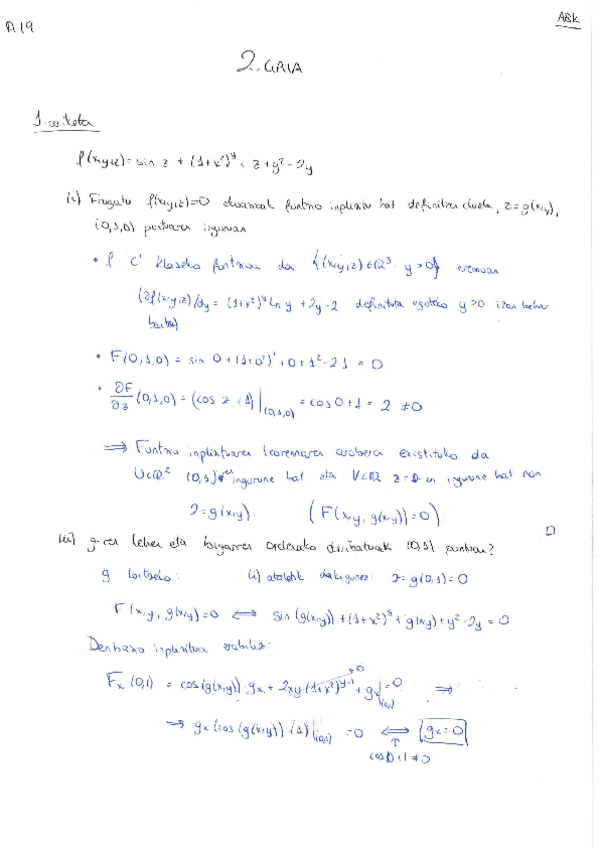 A.19
ABK.
2. GAIA
1. ariketa
f(x,y,z) = sin z + (1+x²)^y + z + y² - 2y
(i) Frogatu f(x,y,z)=0 ekuazioak funtzio inplizitu bat definitzen duela, z = g(x,y),
(0,1,0) puntuaren inguruan
• f C¹ klaseko funtzioa da {(x,y,z) ∈ ℝ³ : y > 0} eremuan
(∂f(x,y,z)/∂y = (1+x²)^y ln y + 2y - 2 definituta egoteko y>0 izan behar
baita)
• F(0,1,0) = sin 0 + (1+0²)¹ + 0 + 1² - 2·1 = 0
• ∂F/∂z (0,1,0) = (cos z + 1)|(0,1,0) = cos 0 + 1 = 2 ≠ 0
⟹ Funtzio inplizituaren teoremaren arabera existituko da
U⊂ℝ² (0,1)-en ingurune bat eta V⊂ℝ z=0-en ingurune bat non
z = g(x,y). (F(x,y,g(x,y)) = 0)
(ii) g-ren lehen eta bigarren ordenako deribatuak (0,1) puntuan?
g lortzeko: (i) ataletik dakigunez: z = g(0,1) = 0
F(x,y,g(x,y)) = 0 ⟺ sin(g(x,y)) + (1+x²)^y + g(x,y) + y² - 2y = 0
Deribazio inplizitua erabiliz:
Fx(0,1) = cos(g(x,y)) gx + 2xy(1+x²)^(y-1) + gx|(0,1) = 0 ⟹
⟹ gx(cos(g(x,y)) + 1)|(0,1) = 0 ⟺ gx = 0
cos 0 + 1 ≠ 0